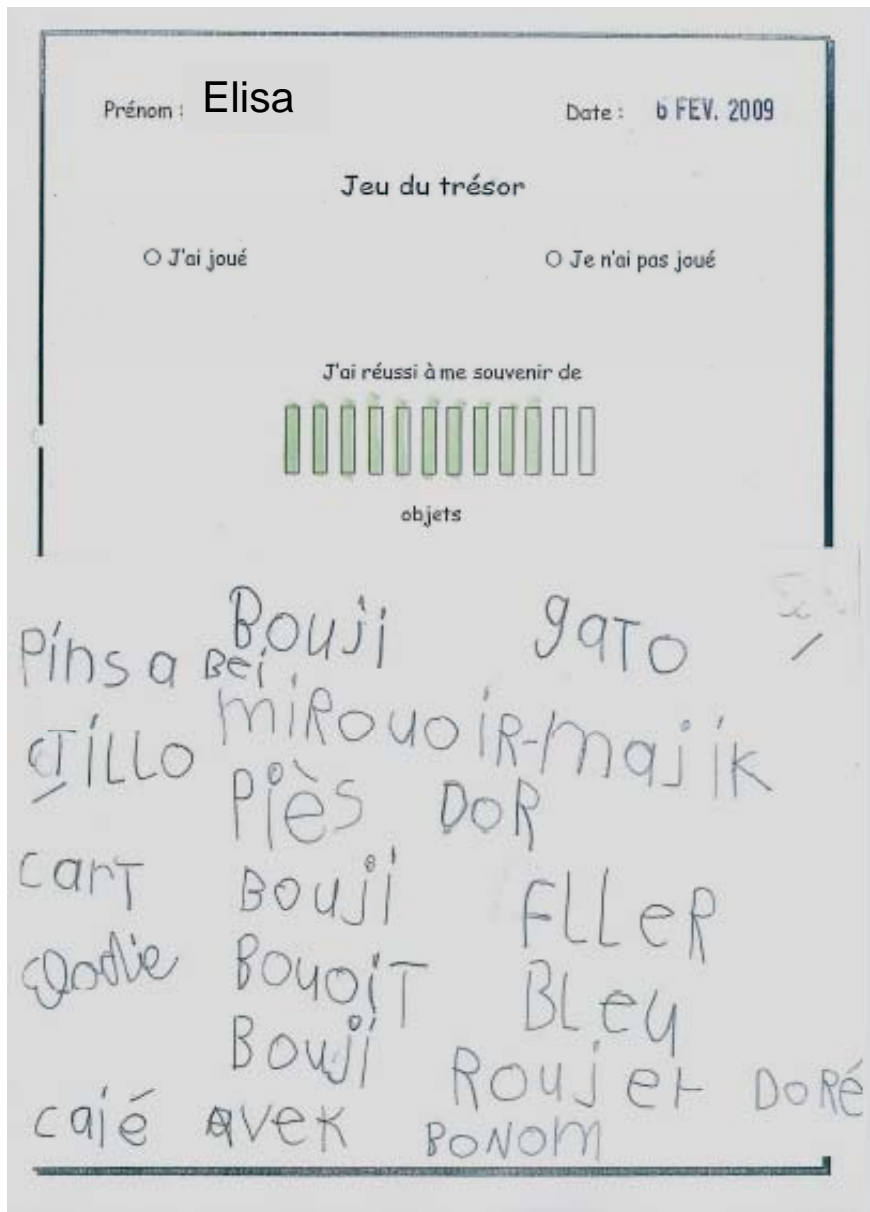 Prénom : Elisa
Date : 6 FEV. 2009
Jeu du trésor
O J'ai joué
O Je n'ai pas joué
J'ai réussi à me souvenir de
objets
Bouji gaTo
Pinsa Bei
miRouoiR-majiK
Piès DoR
carT Bouji FLLeR
BouoiT BLeu
Bouji Roujer DoRé
caié avek BONOM